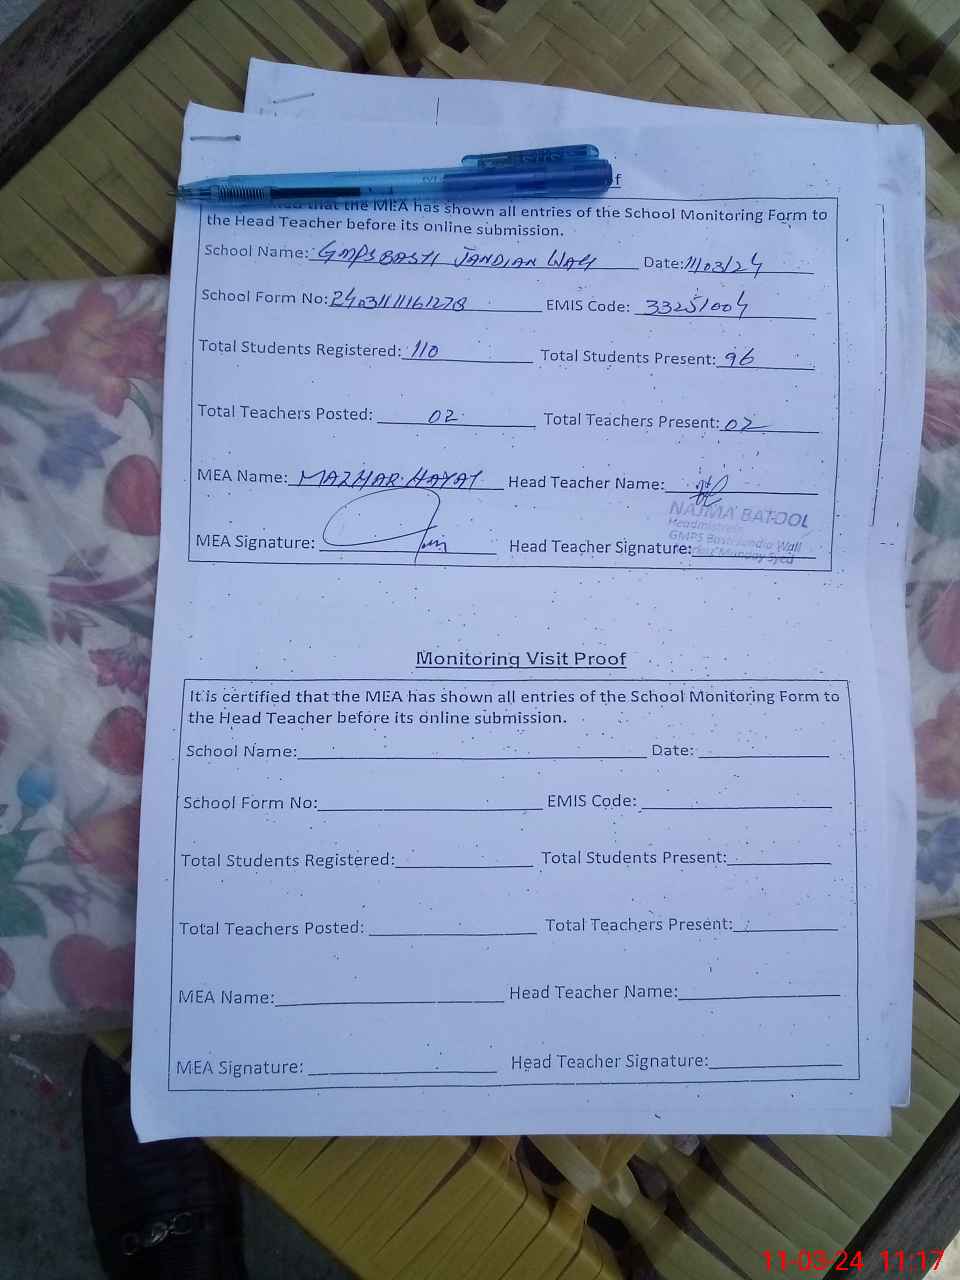 that the MEA has shown all entries of the School Monitoring Form to
the Head Teacher before its online submission.
School Name: GMPS BASTI JANDIAN WALI Date: 11/03/24
School Form No: EMIS Code: 33251004
Total Students Registered: 110 Total Students Present: 96
Total Teachers Posted: 02 Total Teachers Present: 02
MEA Name: MAZHAR HAYAT Head Teacher Name:
NAJMA BATOOL
Headmistress
MEA Signature: Head Teacher Signature:
GMPS Basti Jandia Wali
Syed
Monitoring Visit Proof
It is certified that the MEA has shown all entries of the School Monitoring Form to
the Head Teacher before its online submission.
School Name: Date:
School Form No: EMIS Code:
Total Students Registered: Total Students Present:
Total Teachers Posted: Total Teachers Present:
MEA Name: Head Teacher Name:
MEA Signature: Head Teacher Signature:
11-03-24 11:17